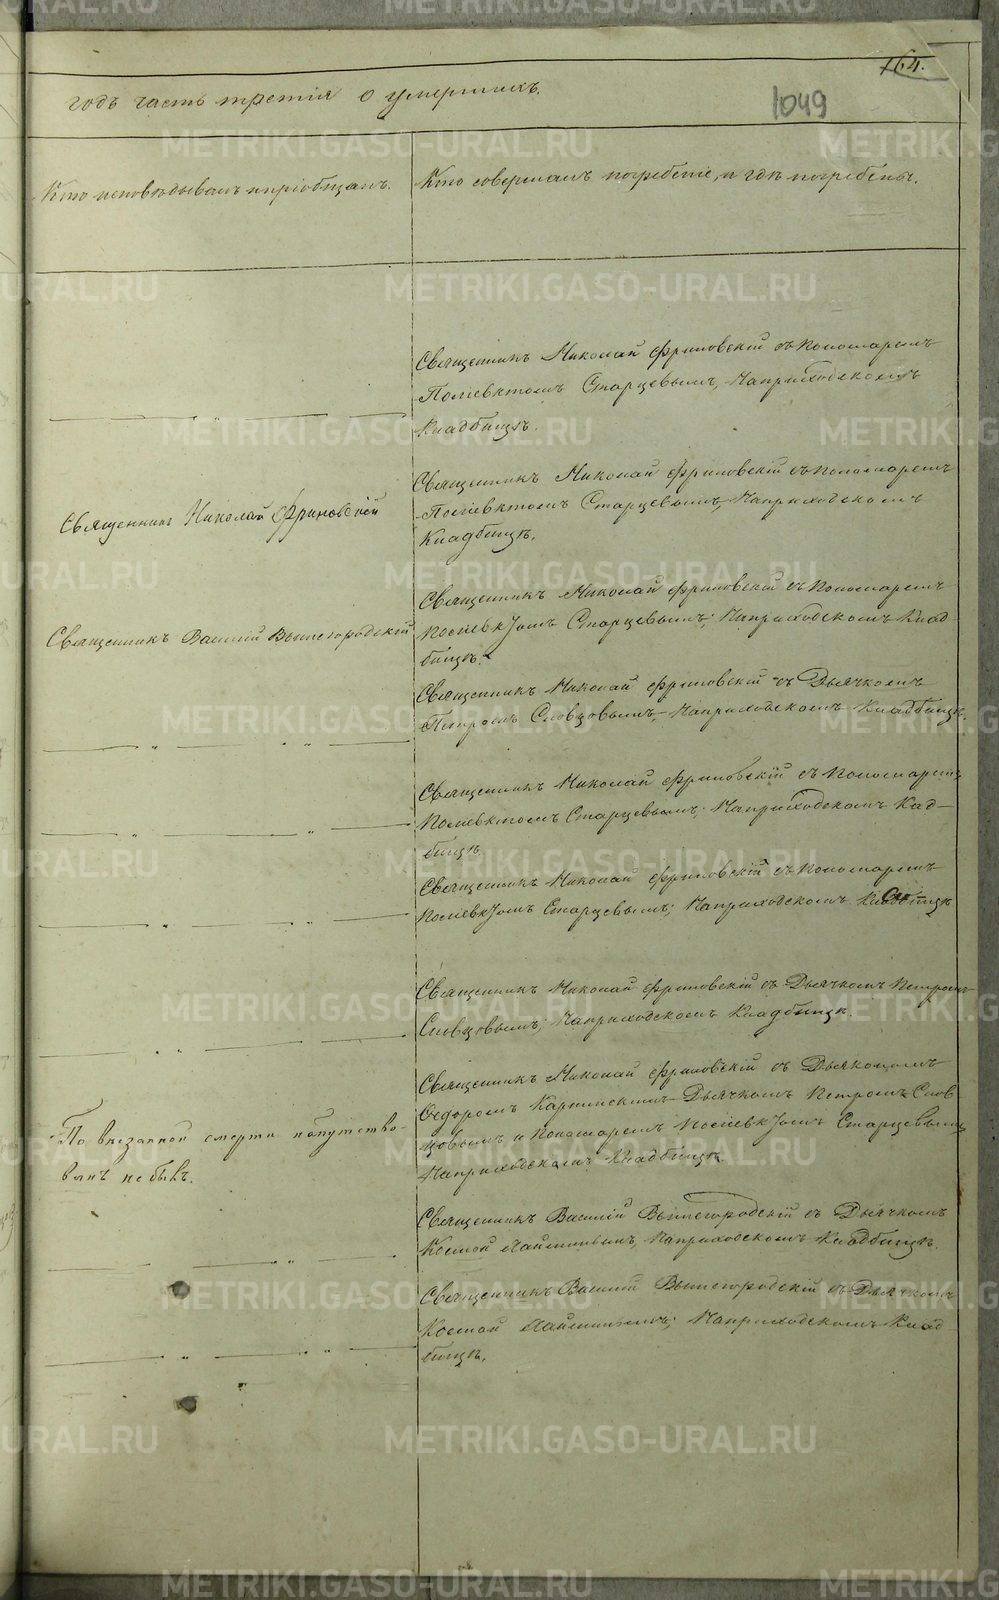 164.
1049
годъ часть третія о умершихъ.
Кто исповѣдывалъ и пріобщалъ.
Кто совершалъ погребеніе, и гдѣ погребены.
Священникъ Николай Фриновскій съ Пономаремъ
Поліевктомъ Старцевымъ, На приходскомъ
Кладбищѣ.
Священникъ Николай Фриновскій
Священникъ Николай Фриновскій съ Пономаремъ
Поліевктомъ Старцевымъ, На приходскомъ
Кладбищѣ.
Священникъ Василій Вышегородскій
Священникъ Николай Фриновскій съ Пономаремъ
Поліевктомъ Старцевымъ; На приходскомъ Клад-
бищѣ.
Священникъ Николай Фриновскій съ Дьячкомъ
Петромъ Словцовымъ, На приходскомъ Кладбищѣ.
Священникъ Николай Фриновскій съ Пономаремъ
Поліевктомъ Старцевымъ; На приходскомъ Кад-
бищѣ.
Священникъ Николай Фриновскій съ Пономаремъ
Поліевктомъ Старцевымъ; На приходскомъ
Священникъ Николай Фриновскій съ Дьячкомъ Петромъ
Словцовымъ; На приходскомъ Кладбищѣ.
По внезапной смерти напутство-
ванъ не былъ.
Священникъ Николай Фриновскій съ Дьякономъ
Ѳедоромъ Дьячкомъ Петромъ Слов
цовымъ и Пономаремъ Поліевктомъ Старцевымъ
На приходскомъ Кладбищѣ.
Священникъ Василій Вышегородскій съ Дьячкомъ
Космой На приходскомъ Кладбищѣ.
Священникъ Василій Вышегородскій съ Дьячкомъ
Космой На приходскомъ Клад
бищѣ.
METRIKI.GASO-URAL.RU